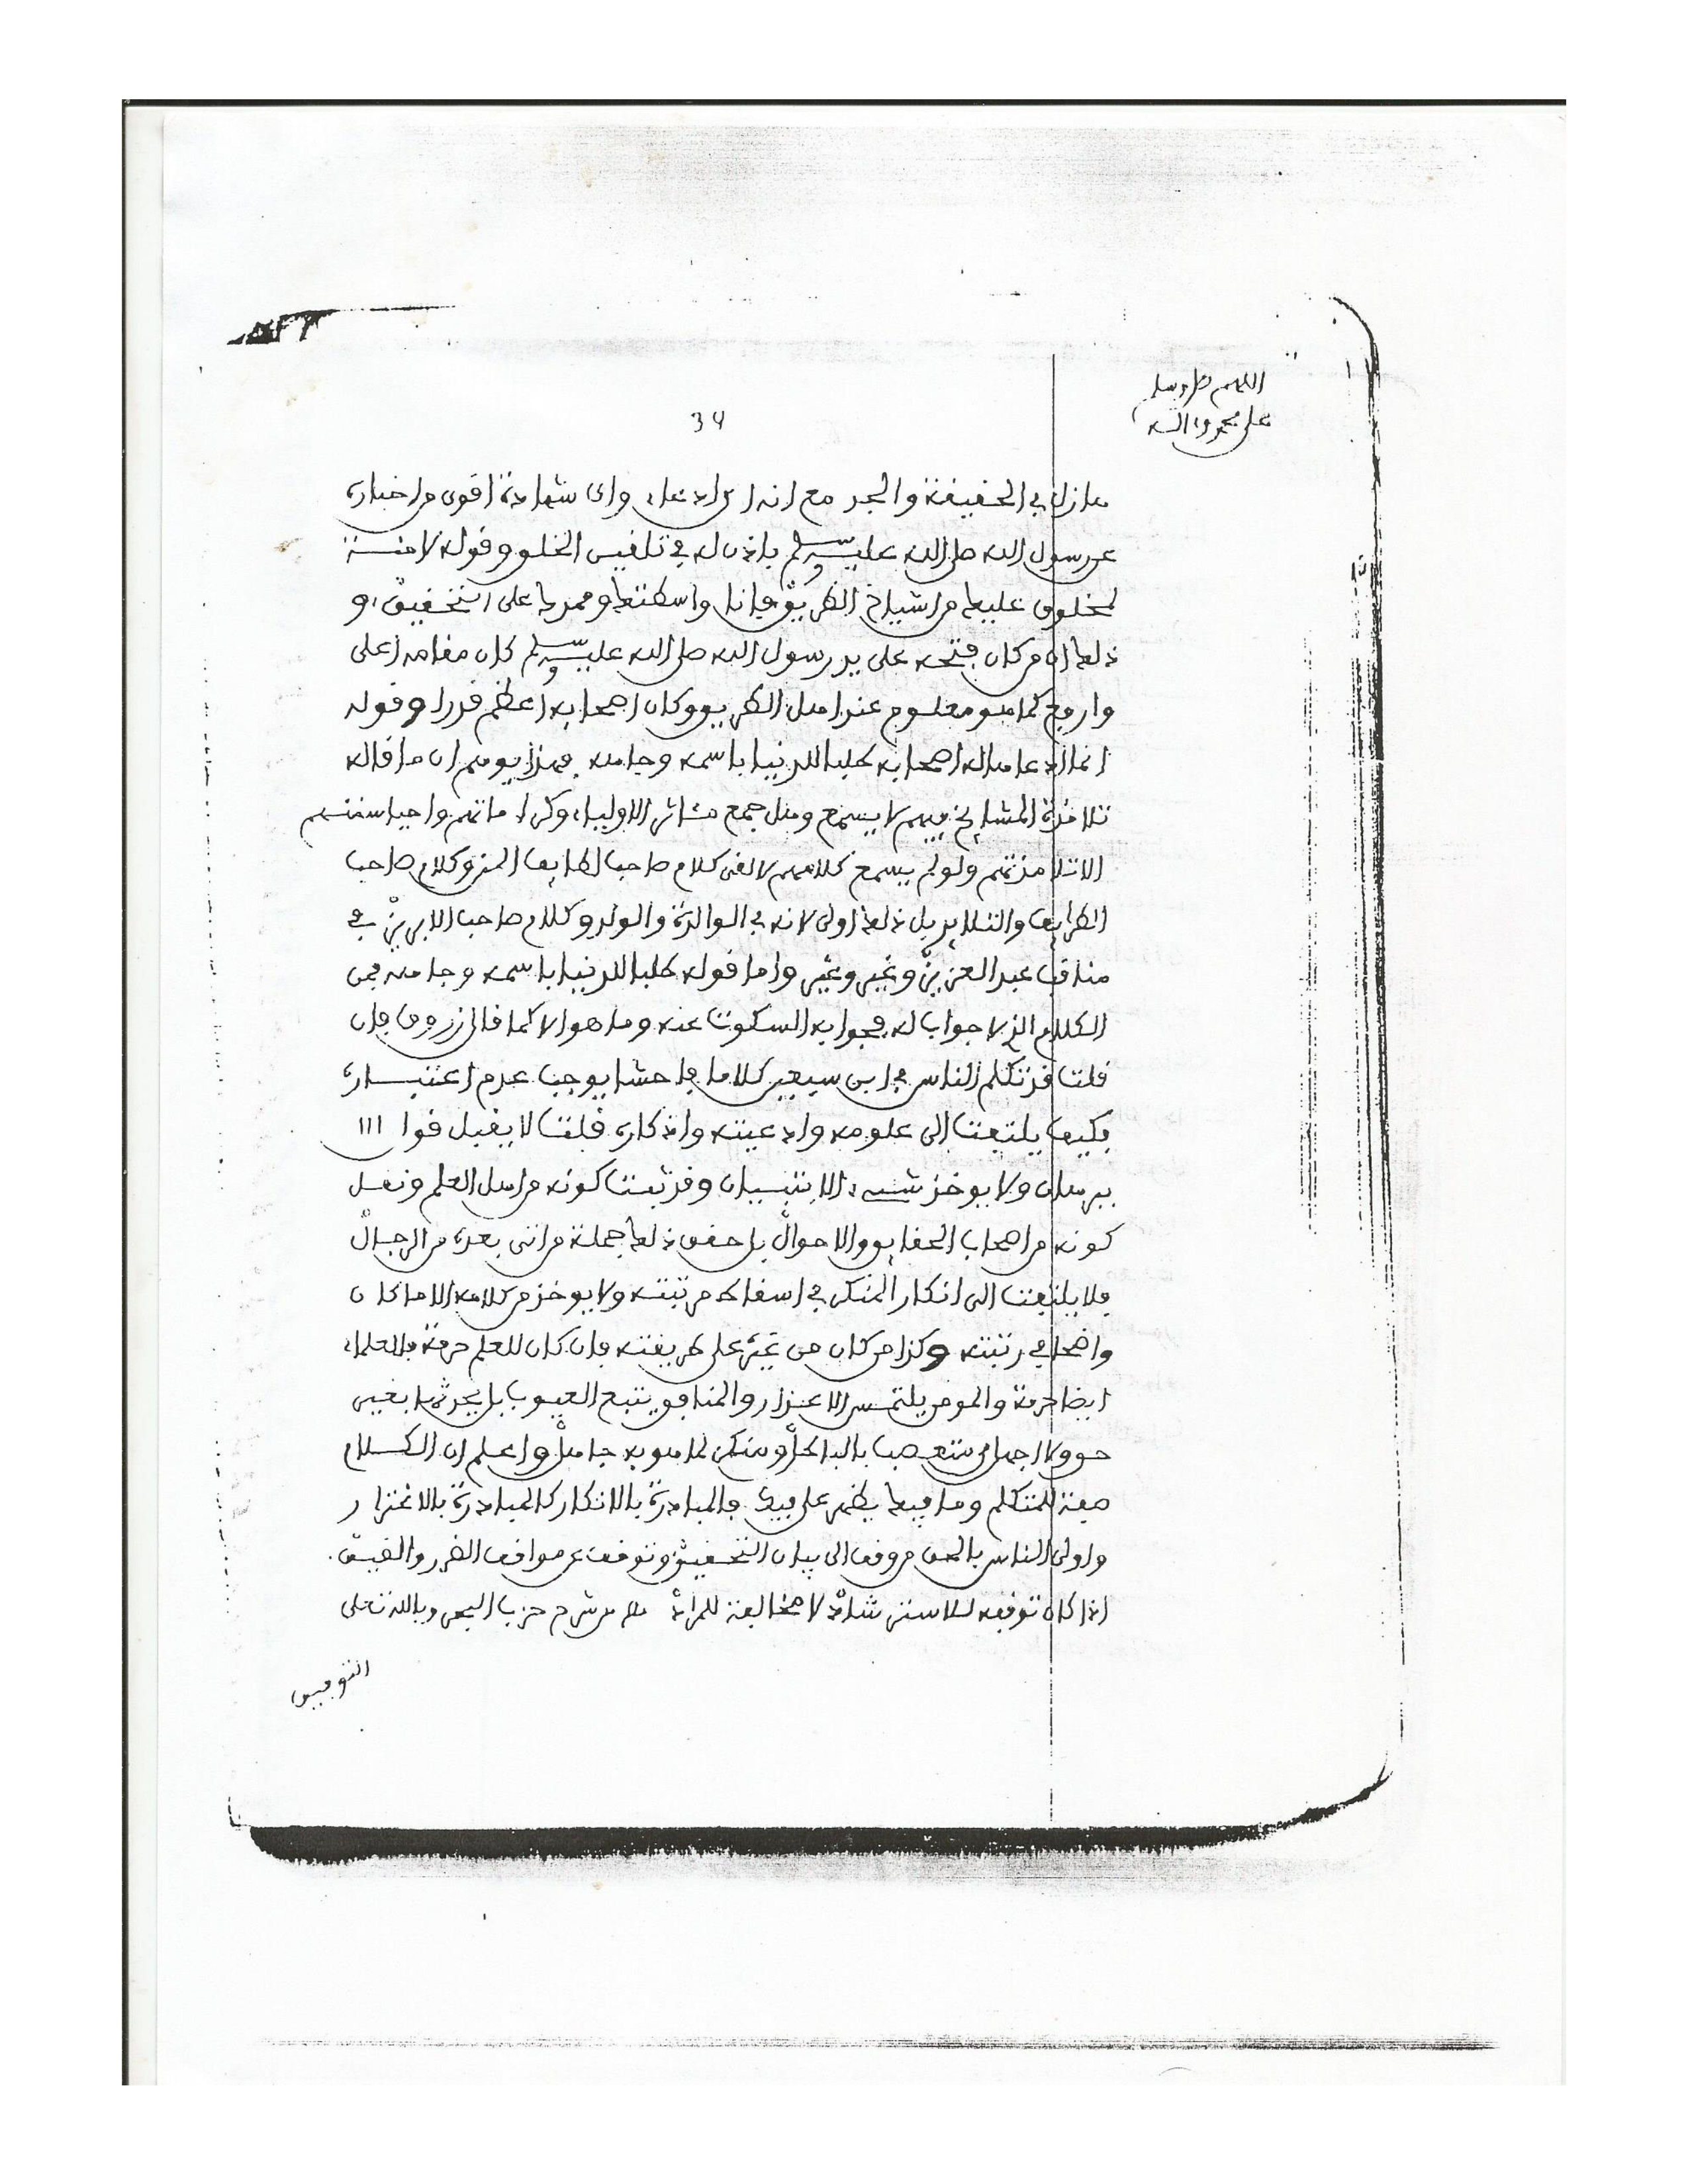 اللهم صل وسلم
على محمد وآله
34
مازل في الحقيقة والجد مع انه اى ادعاء واى شهادة اقوى من اخباره
عن رسول الله صلى الله عليه وسلم باذن له في تلقين الخلق وقوله لا منة
لمخلوق عليك من اشياخ الطريق فانا واسطتك وممدك على التحقيق او
ذلك ان من كان فتحه على يد رسول الله صلى الله عليه وسلم كان مقامه اعلى
واروج كما هو معلوم عند اهل الطريق وكان اصحابه اعظم قدرا وقوله
انما ادعاها له اصحابه طلبا للدنيا باسمه وجاهه فهذا يوهم ان ما قاله
تلامذة المشايخ فيهم لا يسمع وهل جمع مئاثر الاولياء وكراماتهم واحيا سنتهم
الا تلامذتهم ولو لم يسمع كلامهم لالغى كلام صاحب لطايف المنن وكلام صاحب
الطرايف والتلايد بل ذلك اولى لانه في الوالدة والولد وكلام صاحب الابريز في
مناقب عبد العزيز وغير وغير واما قوله طلبا للدنيا باسمه وجاهه فمن
الكلام الذي لا جواب له فجوابه السكوت عنه وما هو الا كما قال زروق فان
قلت قد تكلم الناس في ابن سبعين كلاما فاحشا يوجب عدم اعتباره
فكيف يلتفت الى علومه وادعيته واذكاره قلت لا يقبل قول الا
ببرهان ولا يوخذ شيء الا بتبيان وقد ثبت كونه من اهل العلم ونقل
كونه من اصحاب الحقايق والاحوال بل حقق ذلك جملة من اتى بعده من الرجال
فلا يلتفت الى انكار المنكر في اسقاط مرتبته ولا يوخذ من كلامه الا ما كان
واضحا في رتبته وكذا من كان من غيره على طريقته فان كان للعلم حرمة فللعلماء
ايضا حرمة والمومن يلتمس الاعذار والمنافق يتبع العيوب بل يحدثها بغير
حق ولا اجهل من متعصب بالباطل ومنكر لما هو به جاهل واعلم ان الكلام
صفة المتكلم وما فيك يظهر على فيك فالمبادرة بالانكار كالمبادرة بالاغترار
واولى الناس بالحق من وقف الى بيان التحقيق وتوقف عن مواقف الضرر والضيق
اذا كان توقفه للاسترشاد لا مخالفة للمراد من شرح حزب البحر وبالله تعلى
التوفيق